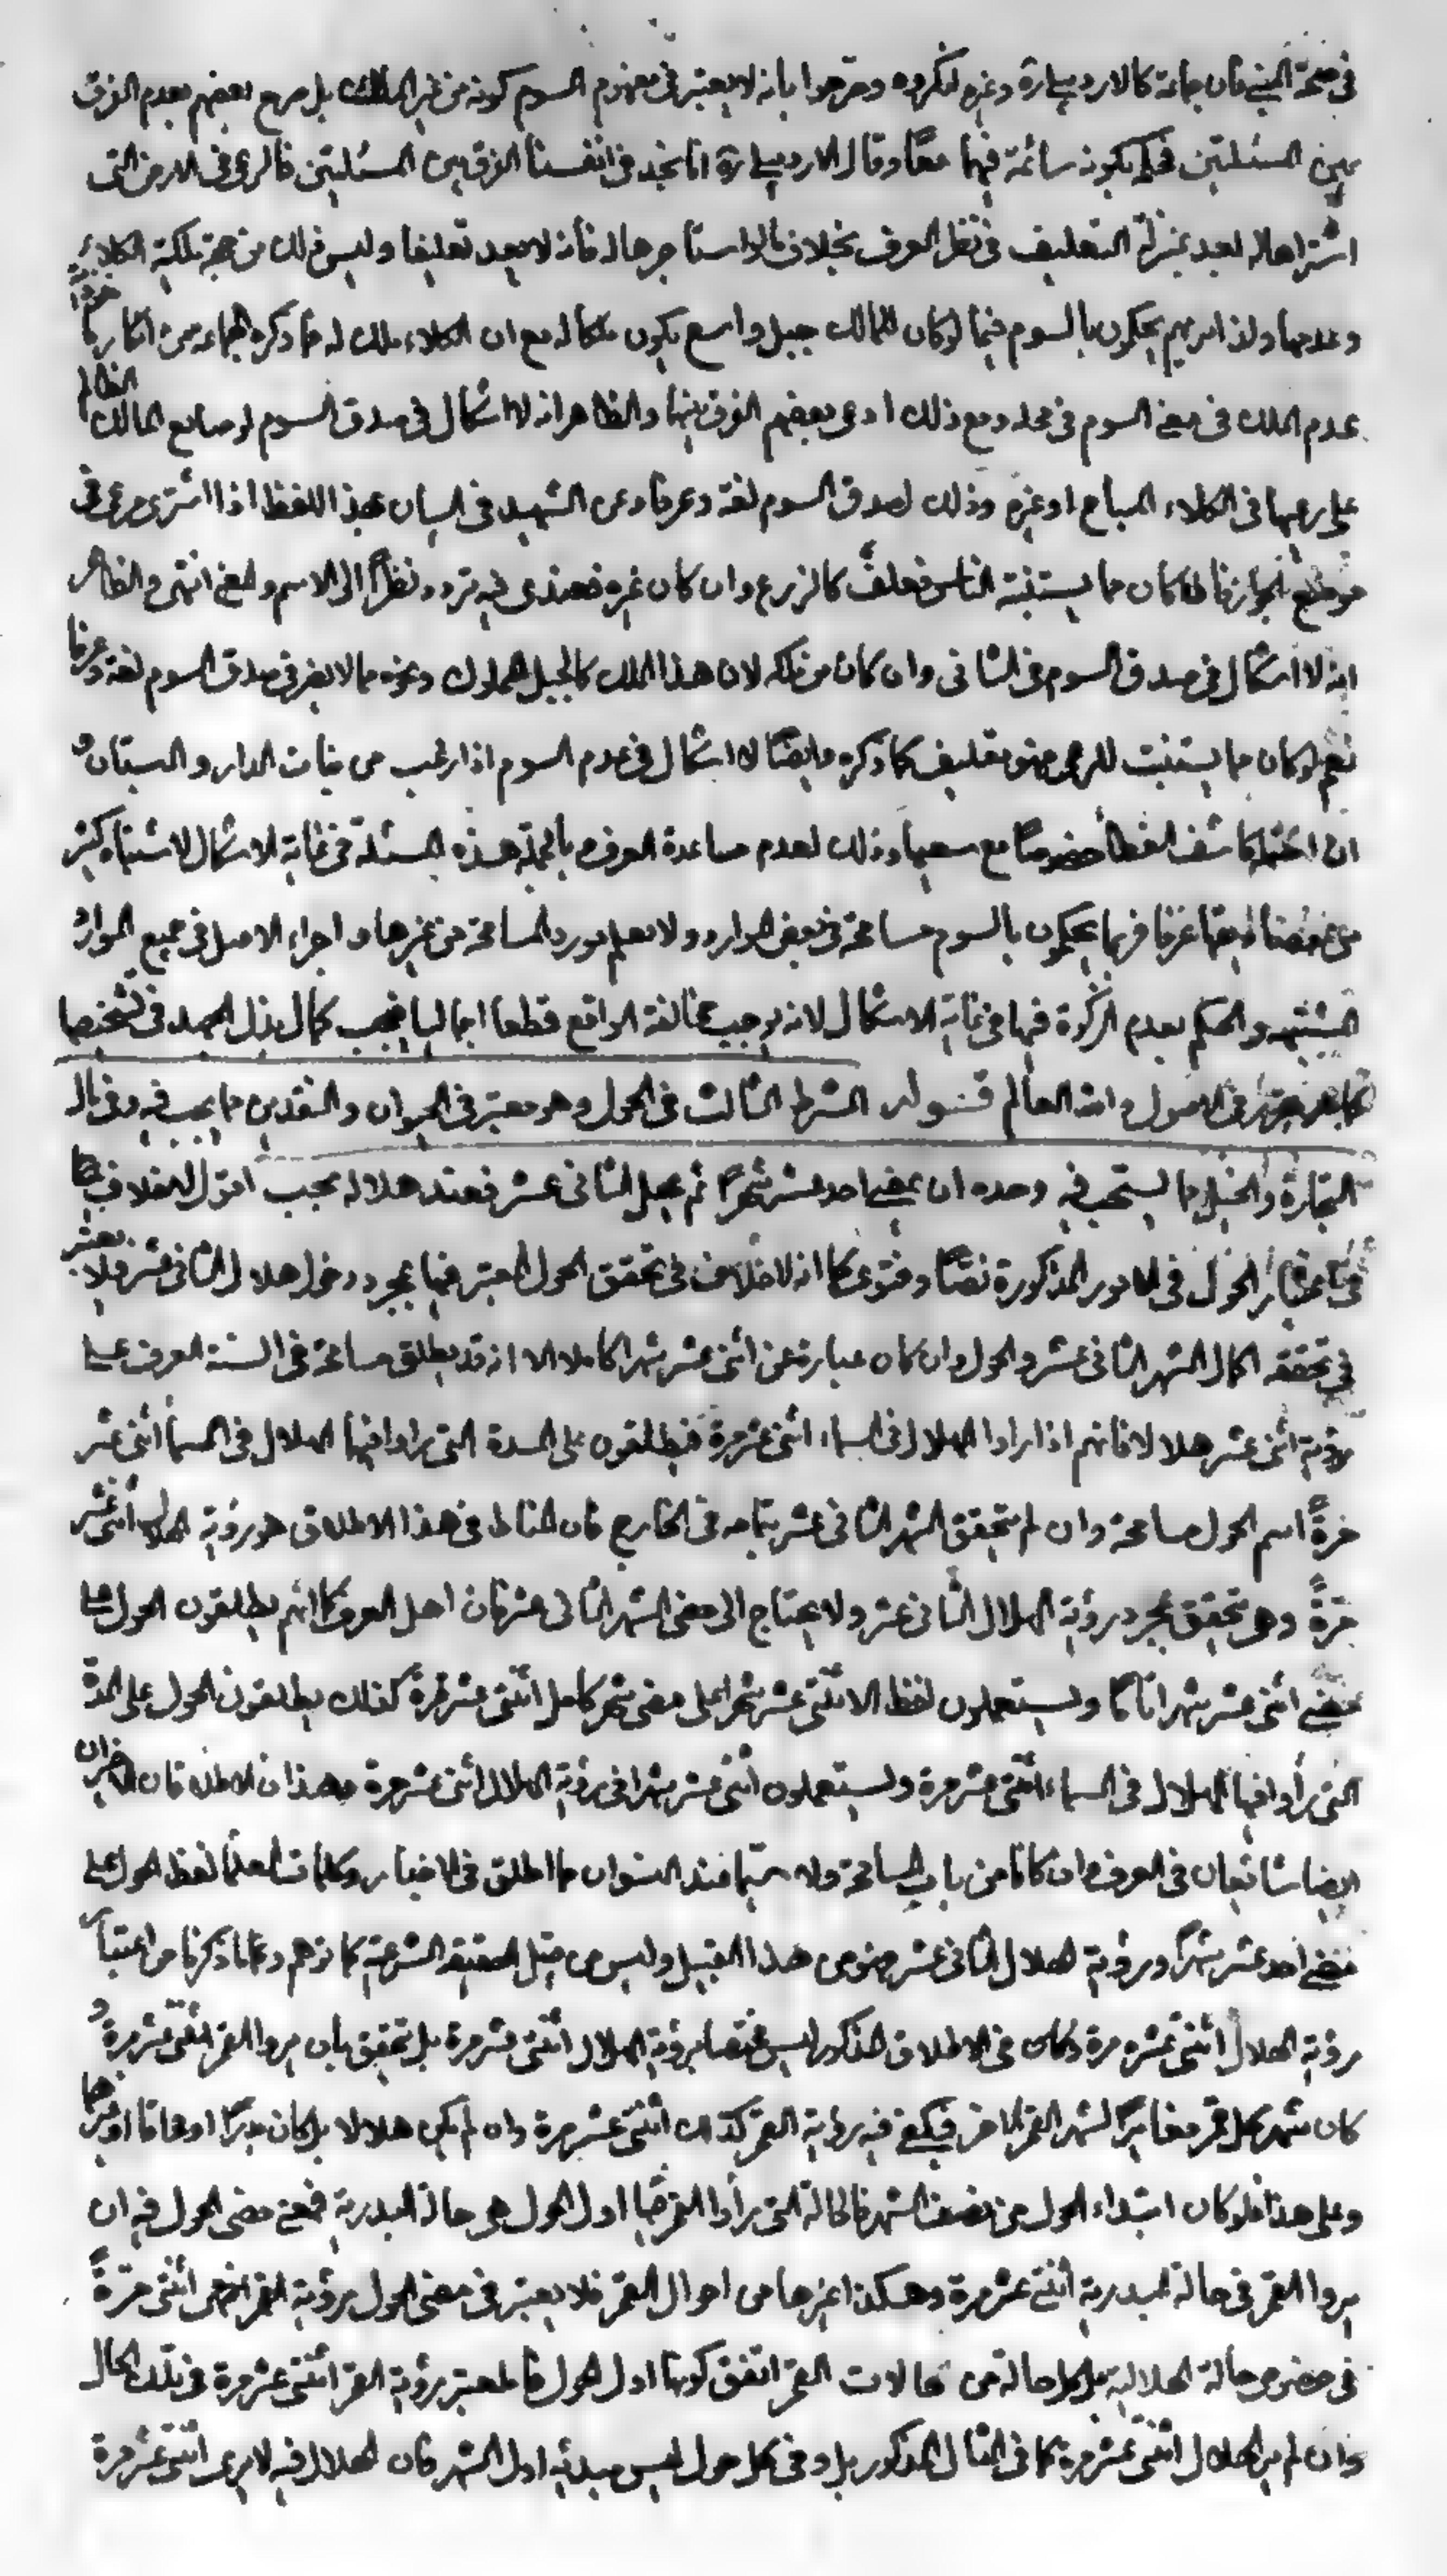 فى صحة المبنى فان جماعة كالاردبيلى ره وغيره انكروه وصرحوا بانه لا يعتبر فى مفهوم السوم كونه من غير الملك بل صرح بعضهم بعدم الفرق
بين المسئلتين فيكون سائمة فيهما معًا وقال الاردبيلى ره انا نجد فى انفسنا الفرق بين المسئلتين فالرعى فى الارض التى
اشتراها له يعد بمنزلة التعليف فى نظر العرف بخلاف ما لو استاجرها له فانه لا يعد تعليفا وليس ذلك من جهة ملكية الكلاء
وعدمها ولذا تريهم يحكمون بالسوم فيما لو كان للمالك جبل واسع يكون ملكا له مع ان الكلاء ملك له فما ذكره الجماعة من انكار
عدم الملك فى معنى السوم فى محله ومع ذلك ادعى بعضهم الفرق بينهما والظاهر انه لا اشكال فى صدق السوم لو صانع المالك الظالم
على رعيها فى الكلاء المباح او غيره وذلك لصدق السوم لغة وعرفا وعن الشهيد فى البيان بهذا اللفظ اذا اشترى مرعى فى
موضع الجواز فان كان مما يستنبته الناس فعلف كالزرع وان كان غيره فعندى فيه تردد نظرًا الى الاسم والمعنى انتهى والظاهر
انه لا اشكال فى صدق السوم فى الثانى وان كان من ملكه لان هذا الملك كالجبل المملوك ونحوه مما لا يضر فى صدق السوم لغة وعرفا
نعم لو كان مما يستنبت للرعى فهو تعليف كما ذكره وايضًا لا اشكال فى عدم السوم اذا رعيت من نبات الدار والبستان و
ان كاشف الغطا خصوصًا مع سعتها وذلك لعدم مساعدة العرف وبالجملة هذه المسئلة فى غاية الاشكال لاشتباه كثير
من عرفا فربما يحكمون بالسوم مسامحة فى بعض الموارد ولا يعلم مورد المسامحة من غيرها واجراء الاصل فى جميع الموارد
المشتبه والحكم بعدم الزكوة فيها فى غاية الاشكال لانه يوجب مخالفة الواقع قطعا اجماليا فيجب كمال بذل الجهد فى تشخيصها
كما هو مقرر فى الاصول والله العالم قوله الشرط الثالث فى الحول وهو معتبر فى الحيوان والنقدين مما يجب فيه وفى مال
التجارة والخيل مما يستحب فيه وحده ان يمضى احد عشر شهرًا ثم يهل الثانى عشر فعند هلاله يجب اقول لا خلاف
فى اعتبار الحول فى الامور المذكورة نصًا وفتوى كما انه لا خلاف فى تحقق الحول المعتبر فيها بمجرد دخول هلال الثانى عشر فلا يعتبر
فى تحققه اكمال الشهر الثانى عشر والحول وان كان عبارة عن اثنى عشر شهرا كاملا الا انه قد يطلق مسامحة فى السنة العرف على
رؤية اثنى عشر هلالا فانهم اذا راوا الهلال فى السماء اثنى عشر مرة فيطلقون على المدة التى راوا فيها الهلال فى السماء اثنى عشر
مرةً اسم الحول مسامحة وان لم يتحقق الشهر الثانى عشر بتمامه فى الخارج فان المناط فى هذا الاطلاق هو رؤية الهلال اثنى عشر
مرةً وهى تتحقق بمجرد رؤية الهلال الثانى عشر ولا يحتاج الى مضى الشهر الثانى عشر فان اهل العرف كما انهم يطلقون الحول على
مضى اثنى عشر شهرا تامًا ويستعملون لفظ الاثنى عشر شهرا على مضى شهر كامل اثنى عشر مرة كذلك يطلقون الحول على المدة
التى رأوا فيها الهلال فى السماء اثنى عشر مرة ويستعملون اثنى عشر شهرا فى رؤية الهلال اثنى عشر مرة وهذان الاطلاقان الاخيران
ايضا شائعان فى العرف وان كانا من باب المسامحة ولا سيما عند النسوان فما اطلق فى الاخبار وكلمات العلماء لفظ الحول على
مضى احد عشر شهرًا ورؤية الهلال الثانى عشر فهو من هذا القبيل وليس من قبيل الحقيقة الشرعية كما توهم وما ذكرنا من اعتبار
رؤية الهلال اثنى عشر مرة وكان فى الاطلاق المذكور ليس مختصا برؤية الهلال اثنى عشر مرة بل تتحقق بان يروا القمر اثنى عشر مرة و
كان شهر كل قمر مغايرًا لشهر القمر الاخر فيكفى فيه رؤية القمر كذلك اثنى عشر مرة وان لم يكن هلالا بل كان بدرًا او محاقا او غيرهما
وعلى هذا فلو كان ابتداء الحول من نصف الشهر فالحالة التى رأوا القمر فيها اول الحول هى حالة البدرية فمعنى مضى الحول فيه ان
يروا القمر فى حالة البدرية اثنى عشر مرة وهكذا غيرها من احوال القمر فلا يعتبر فى مضى الحول رؤية القمر اثنى عشر مرةً
فى خصوص حالة الهلالية بل كل حالة من حالات القمر اتفق كونها اول الحول فالمعتبر رؤية القمر اثنى عشر مرة فى تلك الحال
وان لم ير الهلال اثنى عشر مرة كما فى المثال المذكور بل وفى كل حول ليس مبدئه اول الشهر فان الهلال فيه لا يرى اثنى عشر مرة